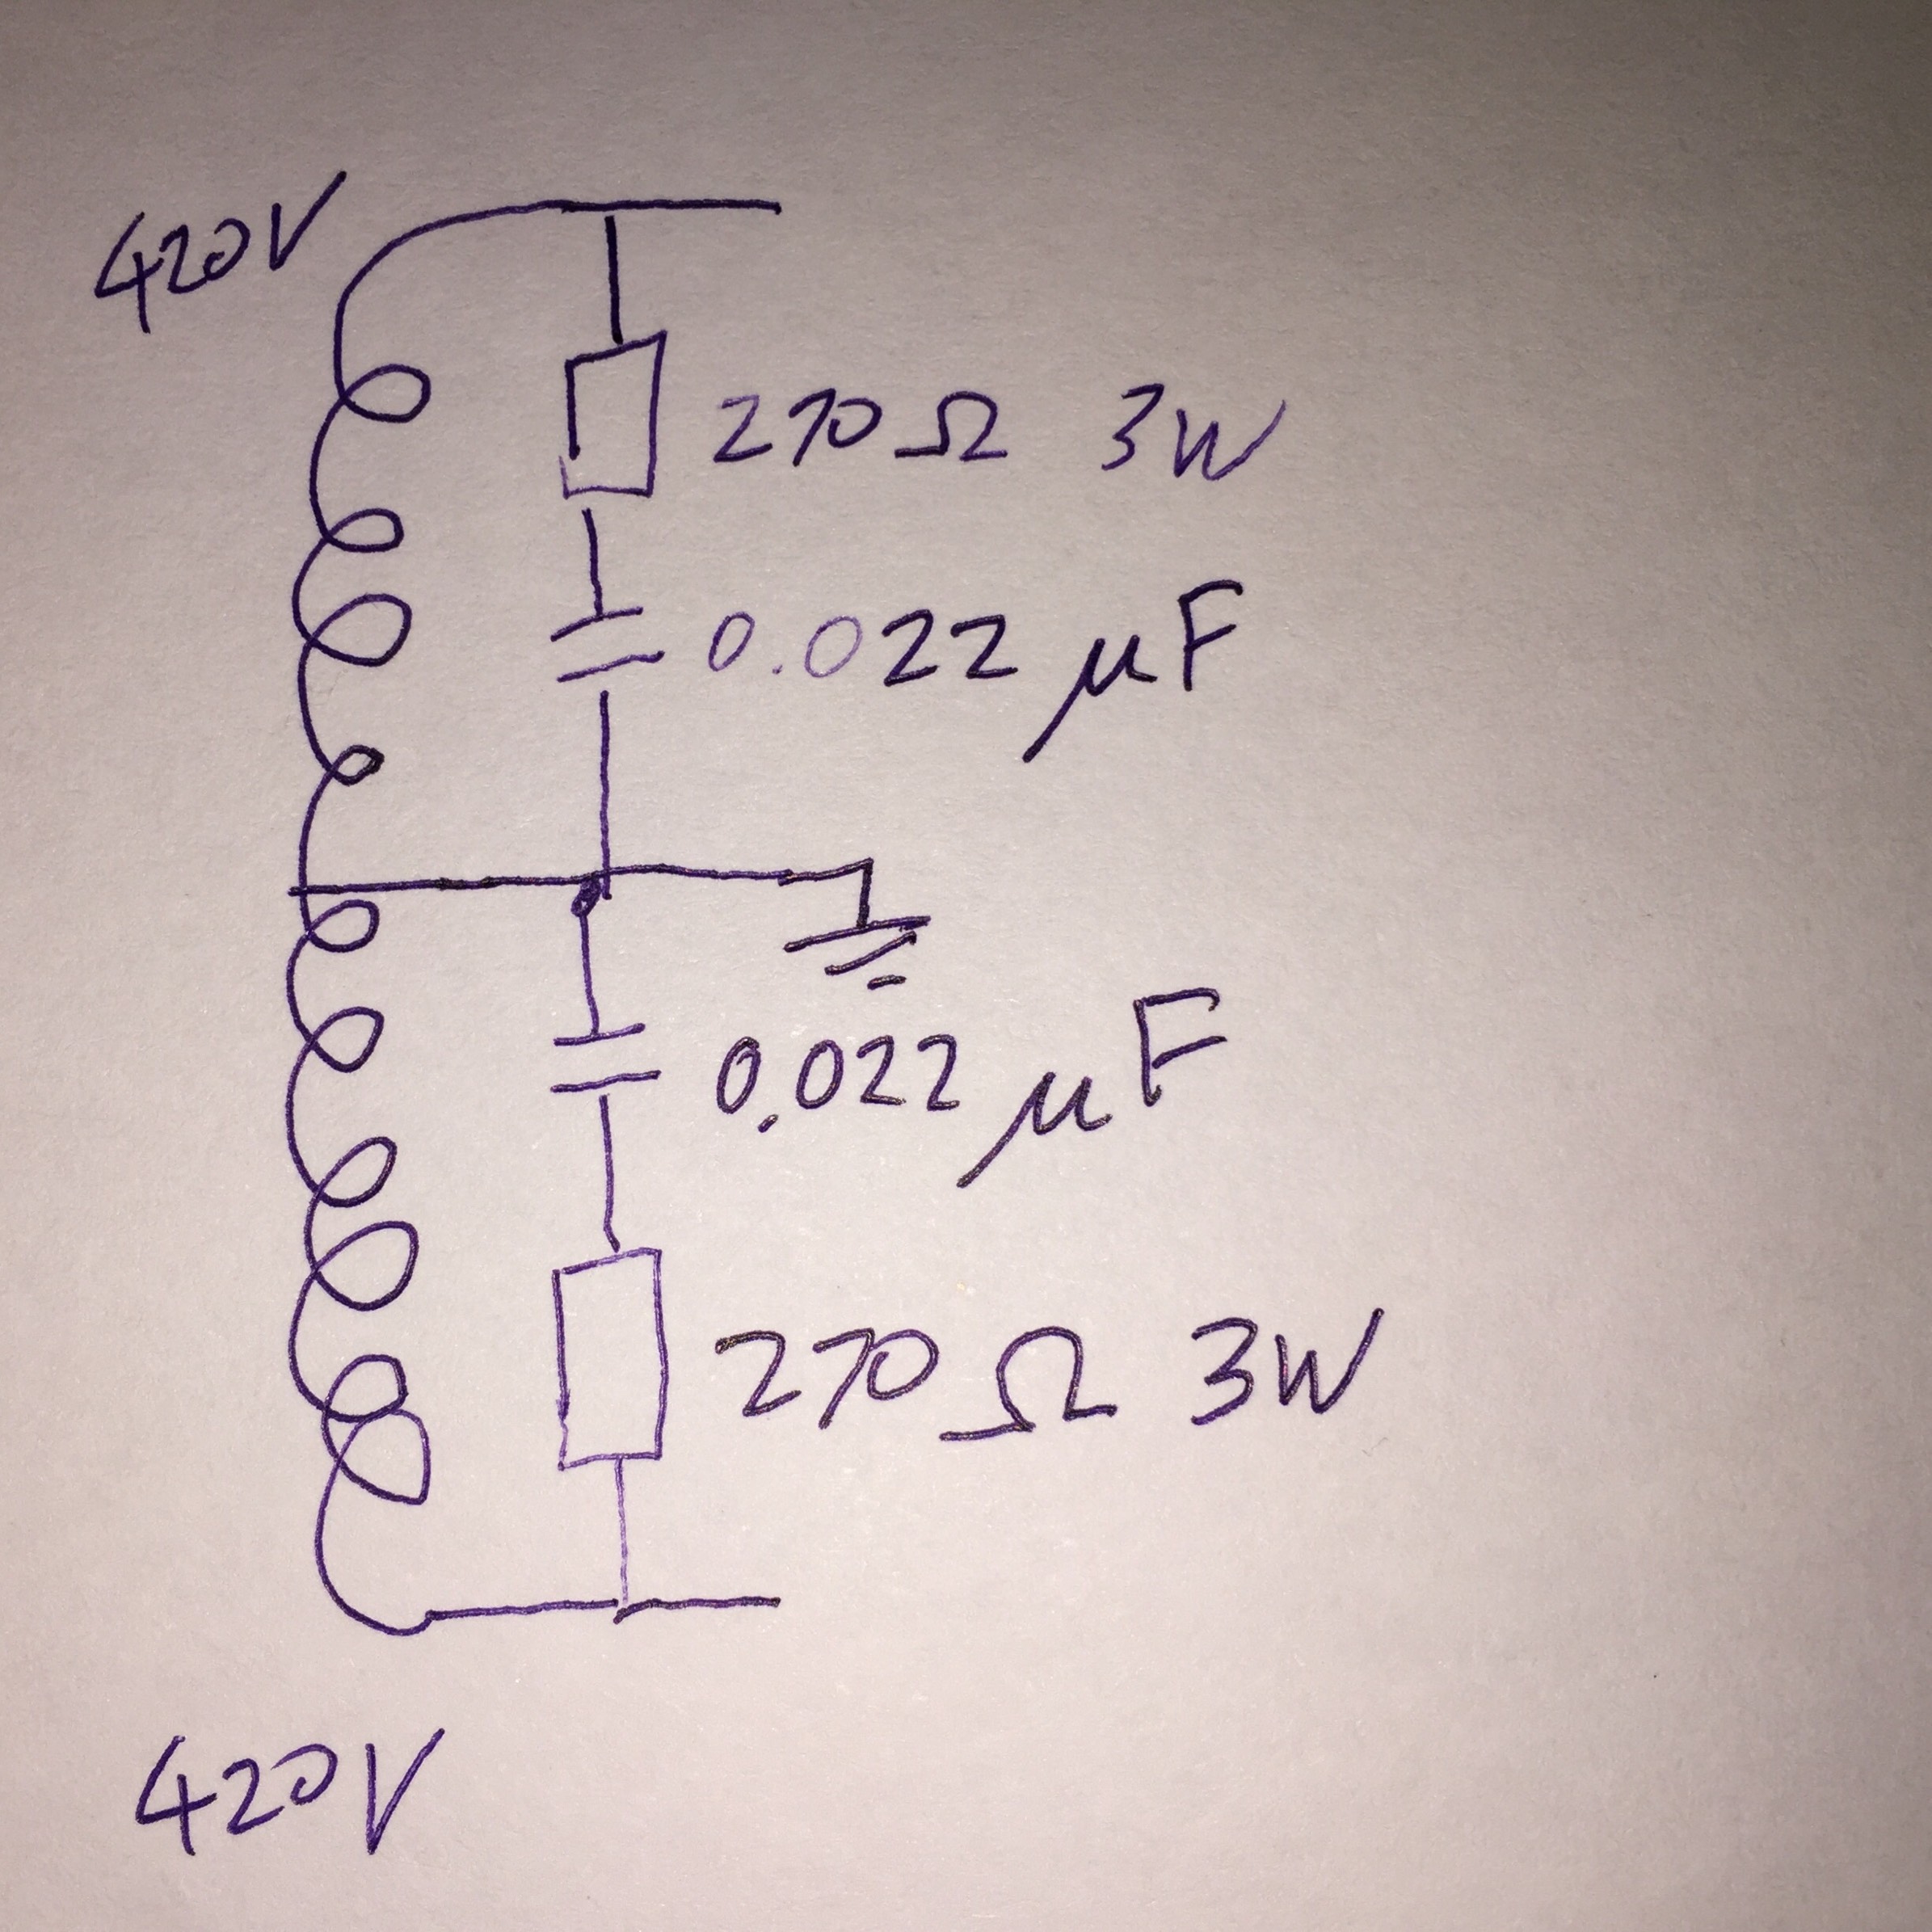 420V
270Ω 3W
0.022 μF
0.022 μF
270Ω 3W
420V